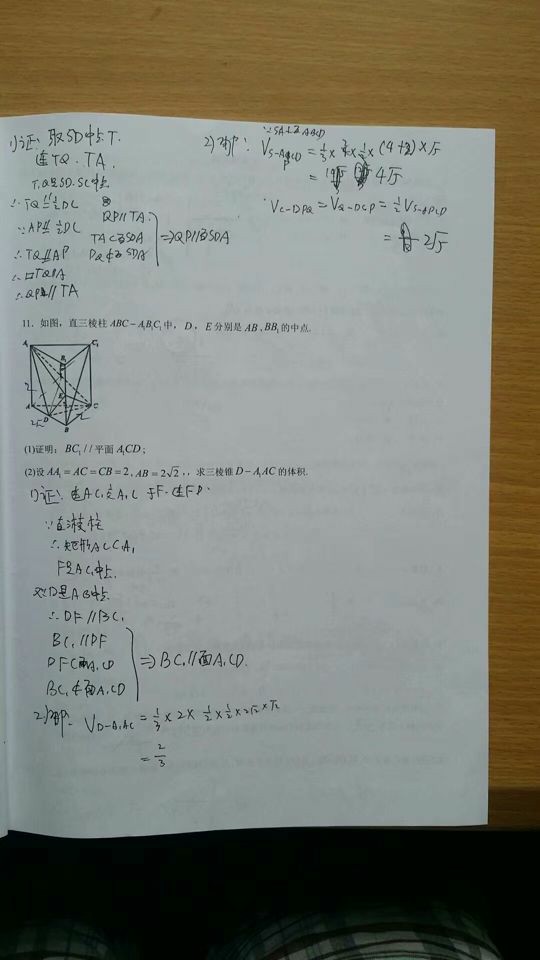 1)证: 取SD中点T.
连TQ、TA.
T,Q是SD、SC中点
∴TQ∥=½DC
∵AP∥=½DC
∴TQ∥=AP
∴□TQPA
∴QP∥TA
QP∥TA
TA⊂面SDA
PQ⊄面SDA
⇒QP∥面SDA
∵SA⊥面ABCD
2)解:
= 4√5
V_{C-DPQ} = V_{Q-DCP} = ½V_{S-DPCD}
= 2√5
11. 如图，直三棱柱 ABC-A₁B₁C₁中，D，E分别是 AB,BB₁的中点.
A₁ B₁ C₁
E
A C
D
B
2√2
(1)证明：BC₁//平面A₁CD；
(2)设 AA₁=AC=CB=2,AB=2√2,，求三棱锥D-A₁AC的体积.
1)证: 连AC₁交A₁C于F.连FD.
∵直棱柱
∴矩形ACC₁A₁
F是AC₁中点.
又D是AB中点
∴DF∥BC₁
BC₁∥DF
DF⊂面A₁CD
BC₁⊄面A₁CD
⇒BC₁∥面A₁CD.
2)解: V_{D-A₁AC} = ⅓×2×½×½×2√2×√2
= 2/3